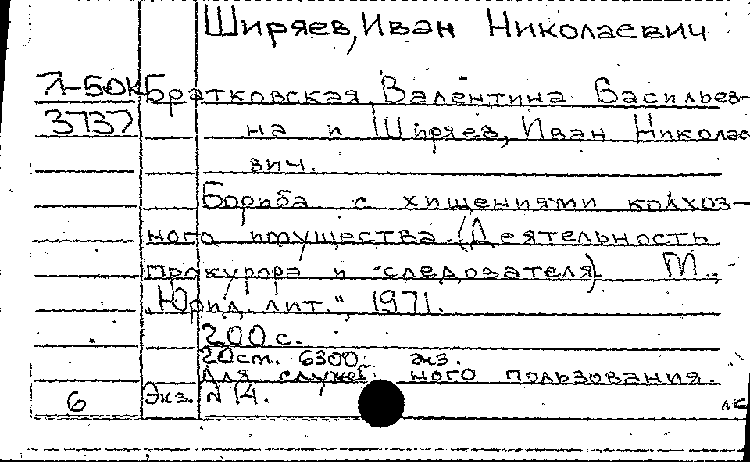 Ширяев, Иван Николаевич
Л-БОК Братковская, Валентина Васильев-
3737 на и Ширяев, Иван Николае
вич.
Борьба с хищениями колхоз-
ного имущества. (Деятельность
прокурора и следователя) М.,
"Юрид. лит.", 1971.
200 с.
20 см. 6300 экз.
Для служеб. ного пользования.
6 Экз. N 14.